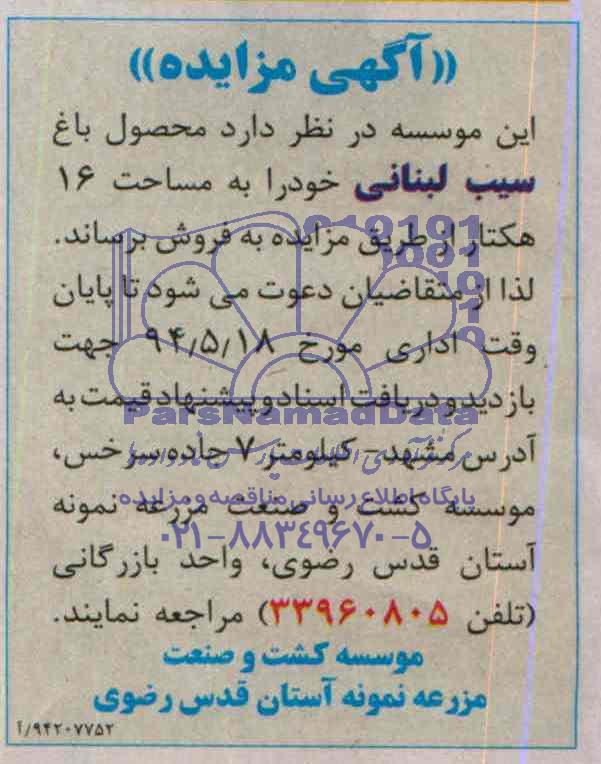 «آگهی مزایده»
این موسسه در نظر دارد محصول باغ
سیب لبنانی خودرا به مساحت ۱۶
هکتار از طریق مزایده به فروش برساند.
لذا از متقاضیان دعوت می شود تا پایان
وقت اداری مورخ ۹۴٫۵٫۱۸ جهت
بازدید و دریافت اسناد و پیشنهاد قیمت به
ParsNamadData
آدرس مشهد- کیلومتر ۷ جاده سرخس،
پایگاه اطلاع رسانی مناقصه و مزایده
موسسه کشت و صنعت مزرعه نمونه
۰۲۱-۸۸۳۴۹۶۷۰-۵
آستان قدس رضوی، واحد بازرگانی
(تلفن ۳۳۹۶۰۸۰۵) مراجعه نمایند.
موسسه کشت و صنعت
مزرعه نمونه آستان قدس رضوی
۹۴۲۰۷۷۵۲/آ